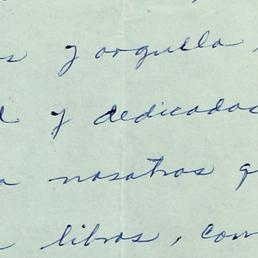 s y orgullo,
d y dedicados
a nosotros q
libros, com